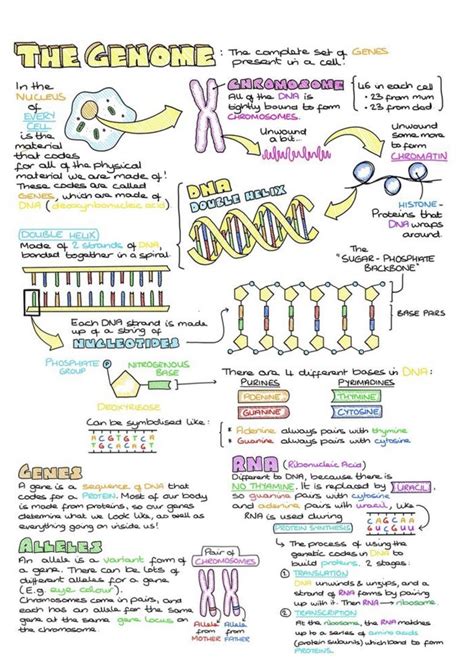 THE GENOME : The complete set of GENES
present in a cell!
In the
NUCLEUS
of
EVERY
CELL
is the
material
that codes
for all of the physical
material we are made of!
These codes are called
GENES, which are made of
DNA (deoxyribonucleic acid)
CHROMOSOME
All of the DNA is
tightly bound to form
CHROMOSOMES.
46 in each cell
• 23 from mum
• 23 from dad
Unwound
a bit...
Unwound
some more
to form
CHROMATIN
HISTONE-
Proteins that
DNA wraps
around.
DNA
DOUBLE HELIX
DOUBLE HELIX
Made of 2 strands of DNA,
bonded together in a spiral.
The
"SUGAR - PHOSPHATE
BACKBONE"
BASE PAIRS
Each DNA strand is made
up of a string of
NUCLEOTIDES
PHOSPHATE
GROUP
P
NITROGENOUS
BASE
DEOXYRIBOSE
There are 4 different bases in DNA:
PURINES
PYRIMADINES
ADENINE
THYMINE
GUANINE
CYTOSINE
* Adenine always pairs with thymine
* Guanine always pairs with cytosine
Can be symbolised like:
A C G T C T
T G C A G A
GENES
A gene is a sequence of DNA that
codes for a PROTEIN. Most of our body
is made from proteins, so our genes
determine what we look like, as well as
everything going on inside us!
RNA (Ribonucleic Acid)
Different to DNA, because there is
NO THYAMINE. It is replaced by URACIL,
so guanine pairs with cytosine
and adenine pairs with uracil, like
RNA is used during
PROTEIN SYNTHESIS
C A G C A A
G U C G U U
↳ The process of using the
genetic codes in DNA to
build proteins, 2 stages:
① TRANSLATION
DNA unwinds & unzips, and a
strand of RNA forms by pairing
up with it. Then RNA → ribosome.
② TRANSCRIPTION
At the ribosome, the RNA matches
up to a series of amino acids
(protein subunits) which bond to form
ALLELES
An allele is a variant form of
a gene. There can be lots of
different alleles for a gene
(E.g. eye colour).
Chromosomes come in pairs, and
each has an allele for the same
gene at the same gene locus.
Pair of
CHROMOSOMES
Allele
from
MOTHER
Allele
from
FATHER